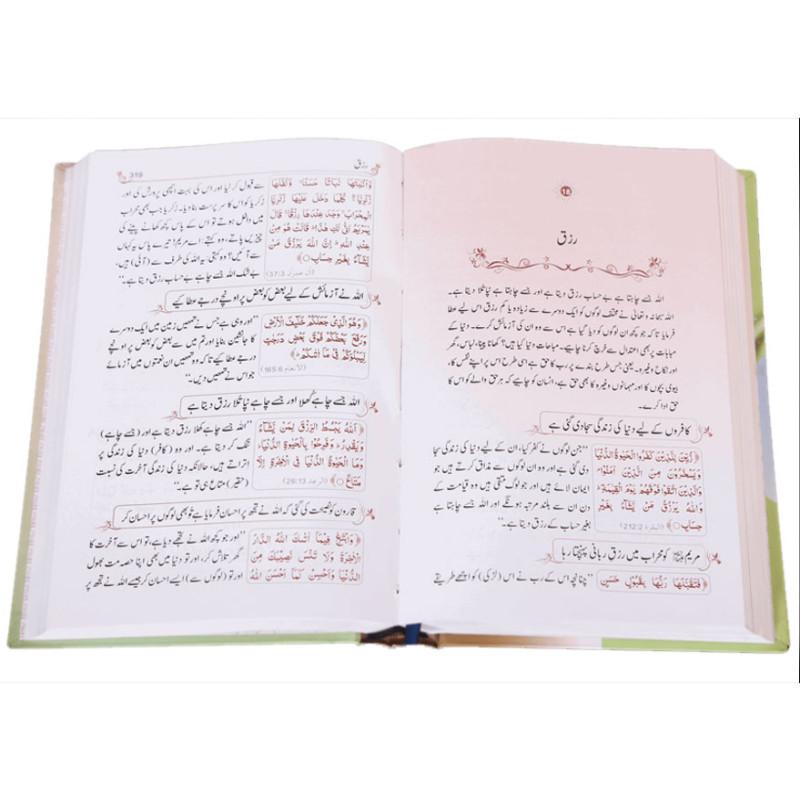 رزق
اللہ جسے چاہتا ہے بے حساب رزق دیتا ہے اور جسے چاہتا ہے نپا تُلا دیتا ہے۔
اللہ سبحانہ و تعالیٰ نے مختلف لوگوں کو ایک دوسرے سے زیادہ یا کم رزق اس لیے عطا
فرمایا تاکہ جو کچھ ان لوگوں کو دیا گیا ہے اس سے وہ ان کی آزمائش کرے۔ دنیا کے
مباحات پر بھی اعتدال سے خرچ کرنا چاہیے۔ مباحات دنیا کیا ہیں؟ کھانا پینا، لباس، گھر
اور نکاح وغیرہ۔ یعنی جس طرح بندے پر رب کا حق ہے اسی طرح اس پر اپنے نفس کا،
بیوی بچوں کا اور مہمانوں وغیرہ کا بھی حق ہے، انسان کو چاہیے کہ ہر حق والے کو اس کا
حق ادا کرے۔
کافروں کے لیے دنیا کی زندگی سجا دی گئی ہے
﴿زُيِّنَ لِلَّذِيْنَ كَفَرُوا الْحَيٰوةُ الدُّنْيَا
وَيَسْخَرُوْنَ مِنَ الَّذِيْنَ اٰمَنُوْا
وَالَّذِيْنَ اتَّقَوْا فَوْقَهُمْ يَوْمَ الْقِيٰمَةِ
وَاللّٰهُ يَرْزُقُ مَنْ يَّشَآءُ بِغَيْرِ
حِسَابٍ﴾ (البقرة 212:2)
”جن لوگوں نے کفر کیا، ان کے لیے دنیا کی زندگی سجا
دی گئی ہے اور وہ ان لوگوں سے مذاق کرتے ہیں جو
ایمان لائے ہیں اور جو لوگ متقی ہیں وہ قیامت کے
دن ان سے بلند مرتبہ ہونگے اور اللہ جسے چاہتا ہے
بغیر حساب کے رزق دیتا ہے۔“
مریم کو محراب میں رزق ربانی پہنچتا رہا
﴿فَتَقَبَّلَهَا رَبُّهَا بِقَبُوْلٍ حَسَنٍ
”چنانچہ اس کے رب نے اس (لڑکی) کو اچھے طریقے
رزق
319
وَّاَنْۢبَتَهَا نَبَاتًا حَسَنًا وَّكَفَّلَهَا
زَكَرِيَّا كُلَّمَا دَخَلَ عَلَيْهَا زَكَرِيَّا
الْمِحْرَابَ وَجَدَ عِنْدَهَا رِزْقًا قَالَ
يٰمَرْيَمُ اَنّٰى لَكِ هٰذَا قَالَتْ هُوَ مِنْ
عِنْدِ اللّٰهِ اِنَّ اللّٰهَ يَرْزُقُ مَنْ
يَّشَآءُ بِغَيْرِ حِسَابٍ﴾
(آل عمران 37:3)
سے قبول کر لیا اور اس کی بہت اچھی پرورش کی اور
زکریا کو اس کا سرپرست بنا دیا۔ زکریا جب بھی محراب
میں داخل ہوتے تو اس کے پاس کچھ کھانے پینے کی
چیزیں پاتے، وہ کہتے: اے مریم! تیرے پاس یہ کہاں
سے آئیں؟ وہ کہتی: یہ اللہ کی طرف سے (آئی) ہیں،
بے شک اللہ جسے چاہے بے حساب رزق دیتا ہے۔“
اللہ نے آزمائش کے لیے بعض کو بعض پر اونچے درجے عطا کیے
﴿وَهُوَ الَّذِيْ جَعَلَكُمْ خَلٰٓئِفَ الْاَرْضِ
وَرَفَعَ بَعْضَكُمْ فَوْقَ بَعْضٍ دَرَجٰتٍ
لِّيَبْلُوَكُمْ فِيْ مَآ اٰتٰىكُمْ﴾
(الأنعام 165:6)
”اور وہی ہے جس نے تمھیں زمین میں ایک دوسرے
کا جانشین بنایا اور تم میں سے بعض کو بعض پر اونچے
درجے عطا کیے تاکہ وہ تمھیں ان نعمتوں میں آزمائے
جو اس نے تمھیں دیں۔“
اللہ جسے چاہے کھلا اور جسے چاہے نپا تُلا رزق دیتا ہے
﴿اَللّٰهُ يَبْسُطُ الرِّزْقَ لِمَنْ يَّشَآءُ
وَيَقْدِرُ وَفَرِحُوْا بِالْحَيٰوةِ الدُّنْيَا
وَمَا الْحَيٰوةُ الدُّنْيَا فِي الْاٰخِرَةِ اِلَّا
مَتَاعٌ﴾ (الرعد 26:13)
”اللہ جسے چاہے کھلا رزق دیتا ہے اور (جسے چاہے)
تنگ کر دیتا ہے۔ اور (کافر) دنیا کی زندگی پر
اتراتے ہیں، حالانکہ دنیا کی زندگی آخرت کی نسبت
(حقیر) متاع ہی تو ہے۔“
قارون کو نصیحت کی گئی کہ اللہ نے تجھ پر احسان فرمایا ہے تو بھی لوگوں پر احسان کر
﴿وَابْتَغِ فِيْمَآ اٰتٰىكَ اللّٰهُ الدَّارَ
الْاٰخِرَةَ وَلَا تَنْسَ نَصِيْبَكَ مِنَ
الدُّنْيَا وَاَحْسِنْ كَمَآ اَحْسَنَ اللّٰهُ
”اور جو کچھ اللہ نے تجھے دیا ہے، تو اس سے آخرت کا
گھر تلاش کر، اور تو دنیا میں بھی اپنا حصہ مت بھول
اور تو (لوگوں سے) ایسے احسان کر جیسے اللہ نے تجھ پر